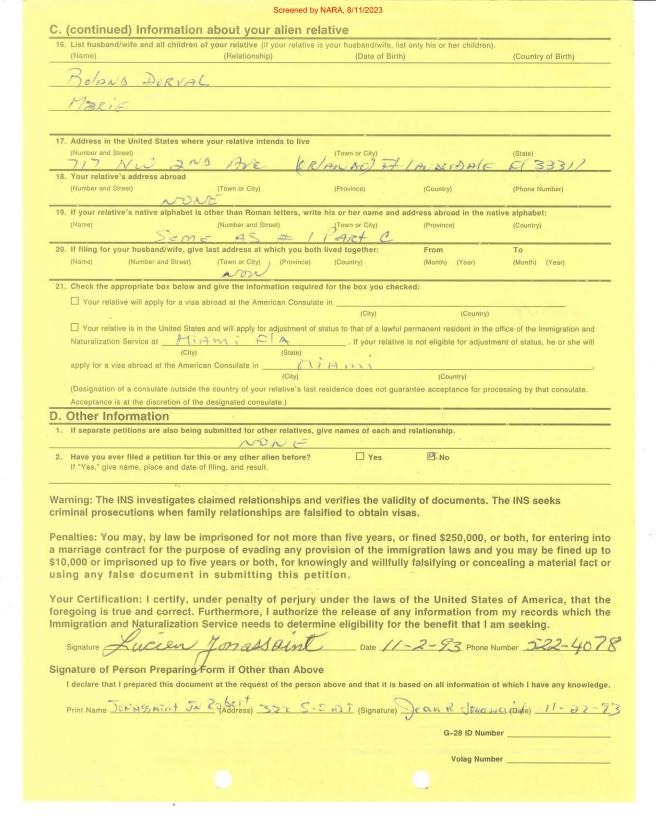 Screened by NARA, 8/11/2023
C. (continued) Information about your alien relative
16. List husband/wife and all children of your relative (if your relative is your husband/wife, list only his or her children).
(Name) (Relationship) (Date of Birth) (Country of Birth)
Roland Dorval
Marie
17. Address in the United States where your relative intends to live
(Number and Street) (Town or City) (State)
717 NW 2nd Ave Ft Lauderdale Fl 33311
18. Your relative's address abroad
(Number and Street) (Town or City) (Province) (Country) (Phone Number)
NONE
19. If your relative's native alphabet is other than Roman letters, write his or her name and address abroad in the native alphabet:
(Name) (Number and Street) (Town or City) (Province) (Country)
Same AS # 1 Part C
20. If filing for your husband/wife, give last address at which you both lived together: From To
(Name) (Number and Street) (Town or City) (Province) (Country) (Month) (Year) (Month) (Year)
21. Check the appropriate box below and give the information required for the box you checked:
☐ Your relative will apply for a visa abroad at the American Consulate in
(City) (Country)
☐ Your relative is in the United States and will apply for adjustment of status to that of a lawful permanent resident in the office of the Immigration and
Naturalization Service at Miami FlA . If your relative is not eligible for adjustment of status, he or she will
(City) (State)
apply for a visa abroad at the American Consulate in Miami ,
(City) (Country)
(Designation of a consulate outside the country of your relative's last residence does not guarantee acceptance for processing by that consulate.
Acceptance is at the discretion of the designated consulate.)
D. Other Information
1. If separate petitions are also being submitted for other relatives, give names of each and relationship.
NONE
2. Have you ever filed a petition for this or any other alien before? ☐ Yes ☒ No
If "Yes," give name, place and date of filing, and result.
Warning: The INS investigates claimed relationships and verifies the validity of documents. The INS seeks
criminal prosecutions when family relationships are falsified to obtain visas.
Penalties: You may, by law be imprisoned for not more than five years, or fined $250,000, or both, for entering into
a marriage contract for the purpose of evading any provision of the immigration laws and you may be fined up to
$10,000 or imprisoned up to five years or both, for knowingly and willfully falsifying or concealing a material fact or
using any false document in submitting this petition.
Your Certification: I certify, under penalty of perjury under the laws of the United States of America, that the
foregoing is true and correct. Furthermore, I authorize the release of any information from my records which the
Immigration and Naturalization Service needs to determine eligibility for the benefit that I am seeking.
Signature Lucien Jonassaint Date 11-2-93 Phone Number 522-4078
Signature of Person Preparing Form if Other than Above
I declare that I prepared this document at the request of the person above and that it is based on all information of which I have any knowledge.
Print Name Jonassaint Jn Robert (Address) 322 (Signature) Jean R (Date) 11-22-93
G-28 ID Number
Volag Number